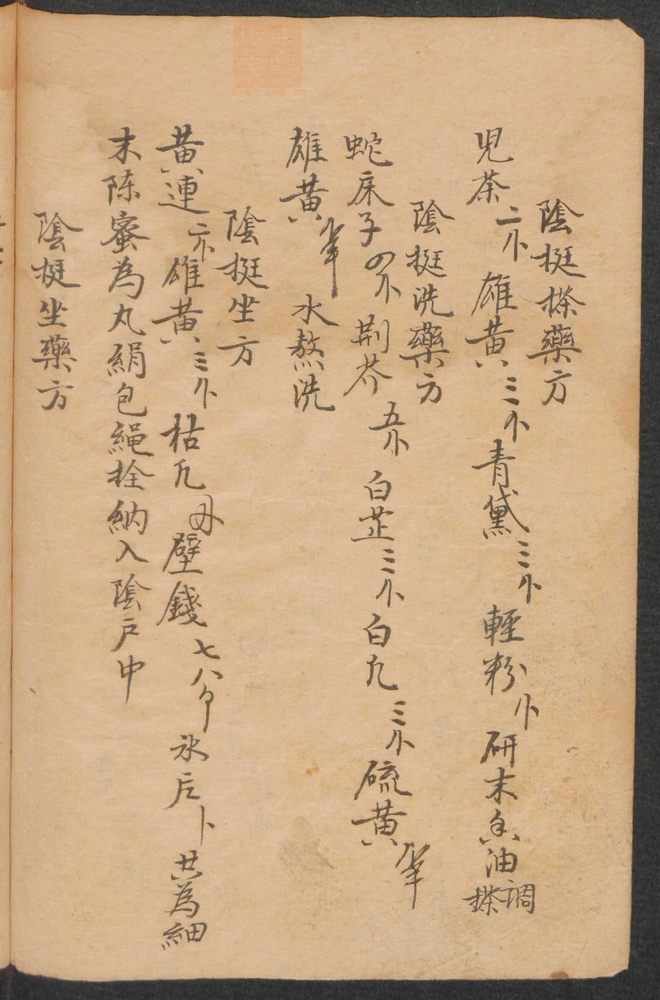 陰挺搽藥方
児茶二卜 雄黄三卜 青黛三卜 輕粉卜 研末 油調搽
陰挺洗藥方
蛇床子 卜 荆芥五卜 白芷三卜 白凡三卜 硫黄
雄黄 水熬洗
陰挺坐方
黄連二卜 雄黄三卜 枯凡 壁錢七八 氷片卜 共為細
末陈蜜為丸絹包繩拴納入陰戸中
陰挺坐藥方